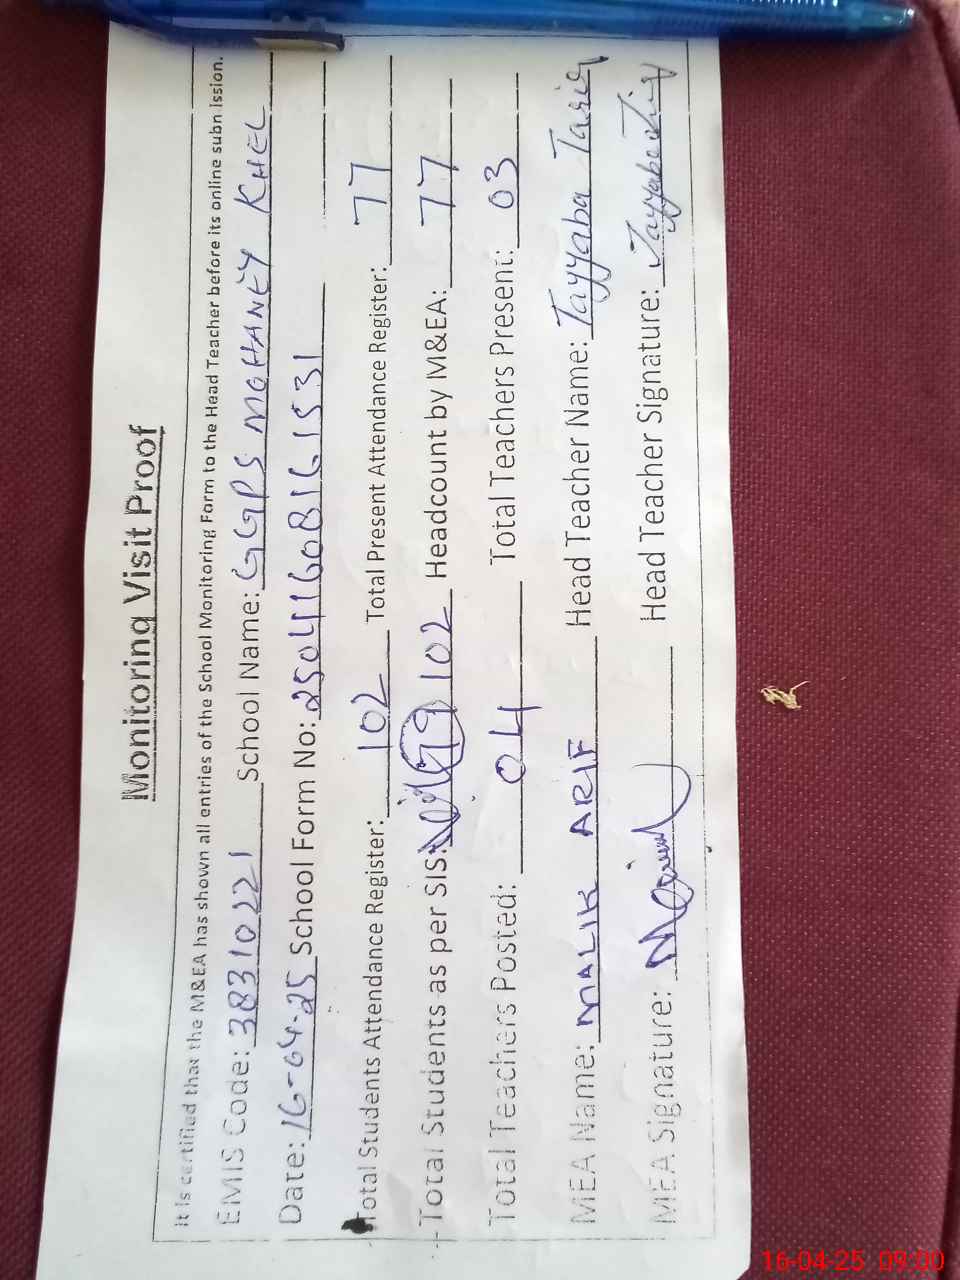 Monitoring Visit Proof
It is certified that the M&EA has shown all entries of the School Monitoring Form to the Head Teacher before its online submission.
EMIS Code: 38310221 School Name: GGPS MOHANEY KHEL
Date: 16-04-25 School Form No: 25041608161531
Total Students Attendance Register: 102 Total Present Attendance Register: 77
Total Students as per SIS: 99 102 Headcount by M&EA: 77
Total Teachers Posted: 04 Total Teachers Present: 03
MEA Name: MALIK ARIF Head Teacher Name: Tayyaba Tariq
MEA Signature: Head Teacher Signature: Tayyaba Tariq
16-04-25 09:00